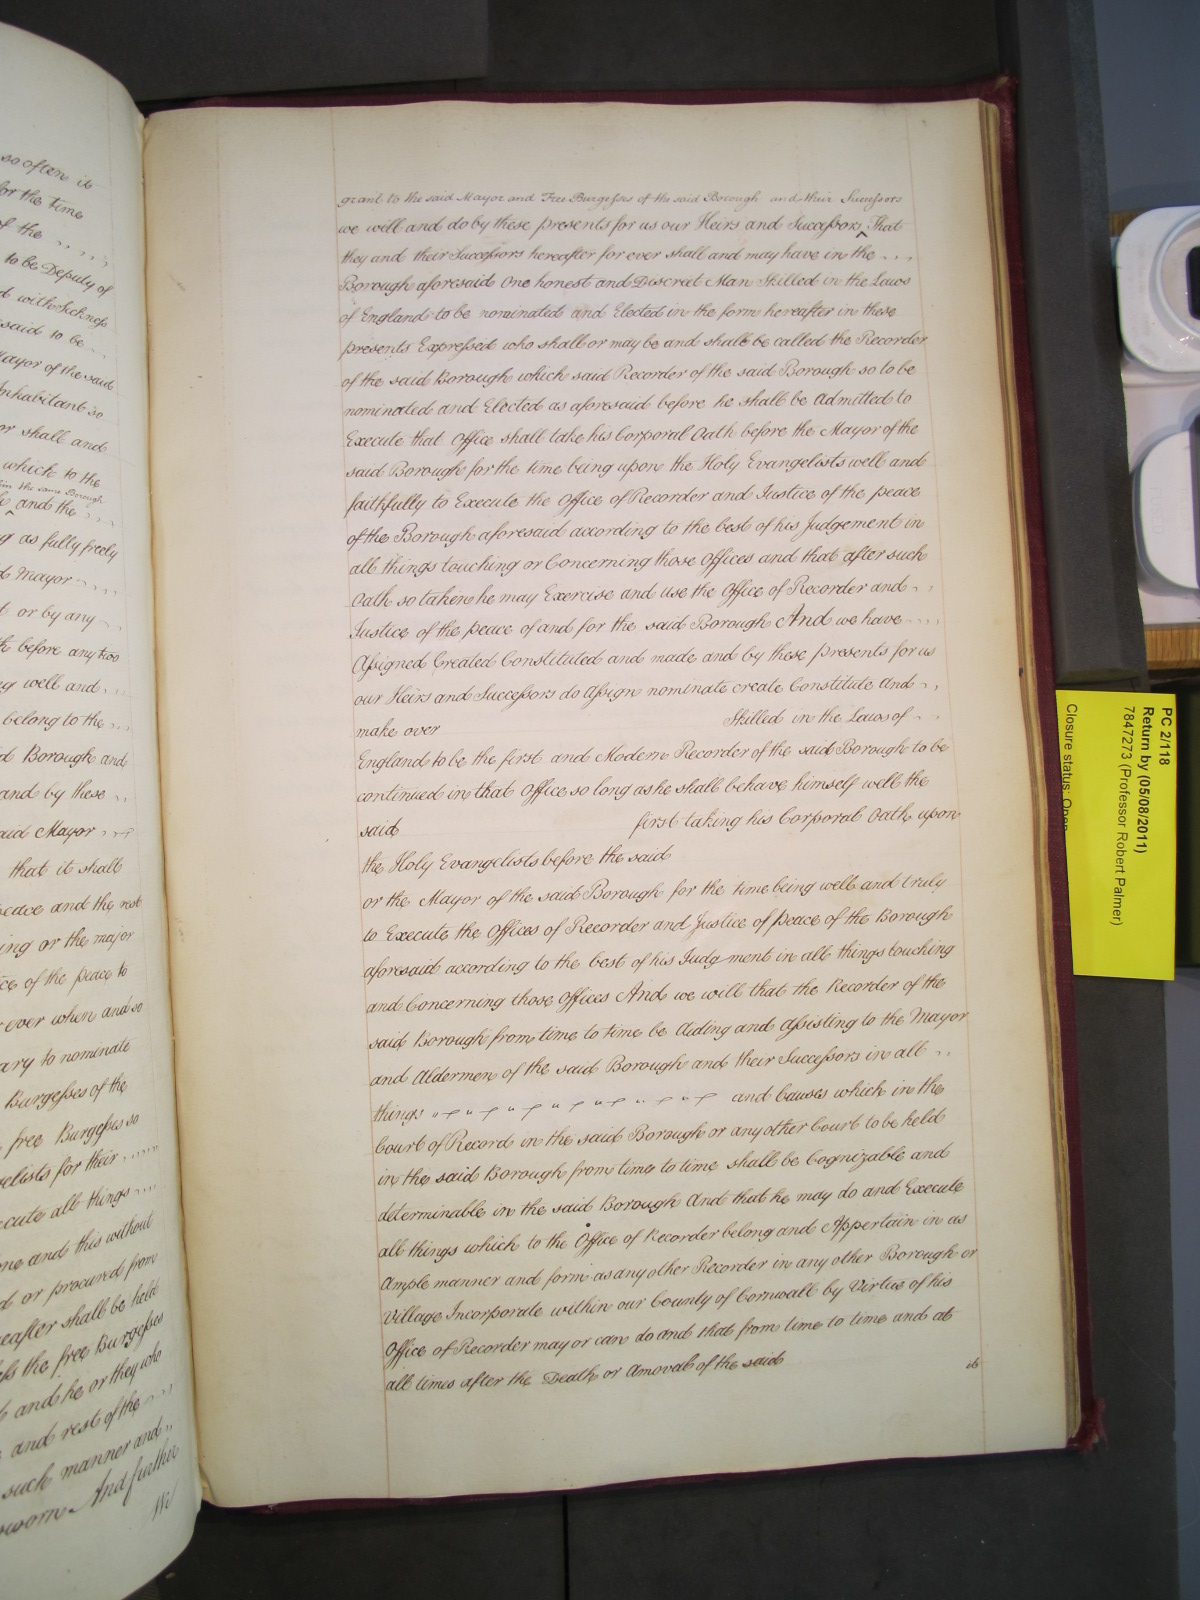 so often it
for the time
of the
to be Deputy of
d with Sickness
said to be
Mayor of the said
Inhabitant so
or shall and
which to the
in the same Borough
and the
g as fully freely
d Mayor
t or by any
h before any two
ng well and
belong to the
d Borough and
and by these
said Mayor
that it shall
peace and the rest
ing or the major
ce of the peace to
r ever when and so
ary to nominate
Burgesses of the
free Burgesses so
gelists for their
cute all things
one and this without
d or procured from
eafter shall be held
the free Burgesses
and he or they who
and rest of the
such manner and
sworn And further
We
grant to the said Mayor and Free Burgesses of the said Borough and their Sucessors
we will and do by these presents for us our Heirs and Successors ^ That
they and their Successors hereafter for ever shall and may have in the
Borough aforesaid One honest and Discreet Man Skilled in the Laws
of England to be nominated and Elected in the form hereafter in these
presents Expressed who shall or may be and shall be called the Recorder
of the said Borough which said Recorder of the said Borough so to be
nominated and Elected as aforesaid before he shall be Admitted to
Execute that Office shall take his Corporal Oath before the Mayor of the
said Borough for the time being upon the Holy Evangelists well and
faithfully to Execute the Office of Recorder and Justice of the peace
of the Borough aforesaid according to the best of his Judgement in
all things touching or Concerning those Offices and that after such
Oath so taken he may Exercise and use the Office of Recorder and
Justice of the peace of and for the said Borough And we have
Assigned Created Constituted and made and by these presents for us
our Heirs and Successors do Assign nominate create Constitute and
make over Skilled in the Laws of
England to be the first and Modern Recorder of the said Borough to be
continued in that Office so long as he shall behave himself well the
said first taking his Corporal Oath upon
the Holy Evangelists before the said
or the Mayor of the said Borough for the time being well and truly
to Execute the Offices of Recorder and Justice of peace of the Borough
aforesaid according to the best of his Judgment in all things touching
and Concerning those Offices And we will that the Recorder of the
said Borough from time to time be Aiding and Assisting to the Mayor
and Aldermen of the said Borough and their Successors in all
things and Causes which in the
Court of Record in the said Borough or any other Court to be held
in the said Borough from time to time shall be Cognizable and
determinable in the said Borough And that he may do and Execute
all things which to the Office of Recorder belong and Appertain in as
Ample manner and form as any other Recorder in any other Borough or
Village Incorporate within our County of Cornwall by Virtue of his
Office of Recorder may or can do and that from time to time and at
all times after the Death or Amoval of the said
it
PC 2/118
Return by (05/08/2011)
7847273 (Professor Robert Palmer)
Closure status: Open